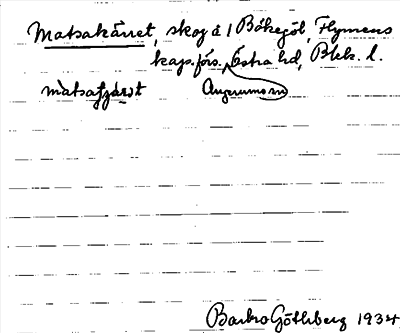 Matsakärret, skog å 1 Bökegöl, Flymens
kap.förs. Östra hd, Blek. l.
matsaʃjärət Augerums sn
Barbro Götherberg 1934